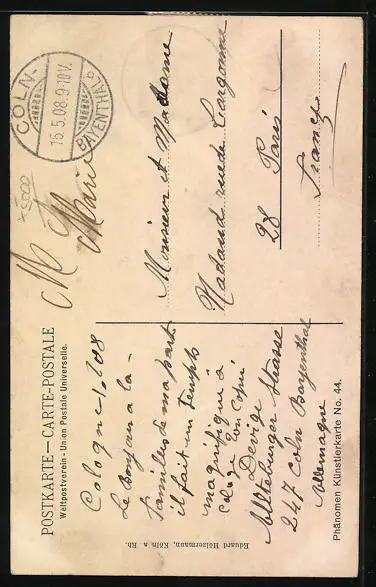 POSTKARTE — CARTE-POSTALE
Weltpostverein - Union Postale Universelle.
CÖLN-
16.5.08.9-10V.
BAYENTHAL b
Cologne 108
Le Bonjour a la
famille de ma part
il fait un temps
magnifique à
Cologne bon Copin,
Alteburger Strasse
247 Coln Bayenthal
Allemagne
Phänomen Künstlerkarte No. 44.
Eduard Hölzermann, Köln a Rh.
Marie
Monsieur et Madame
rue de
28 Paris
France